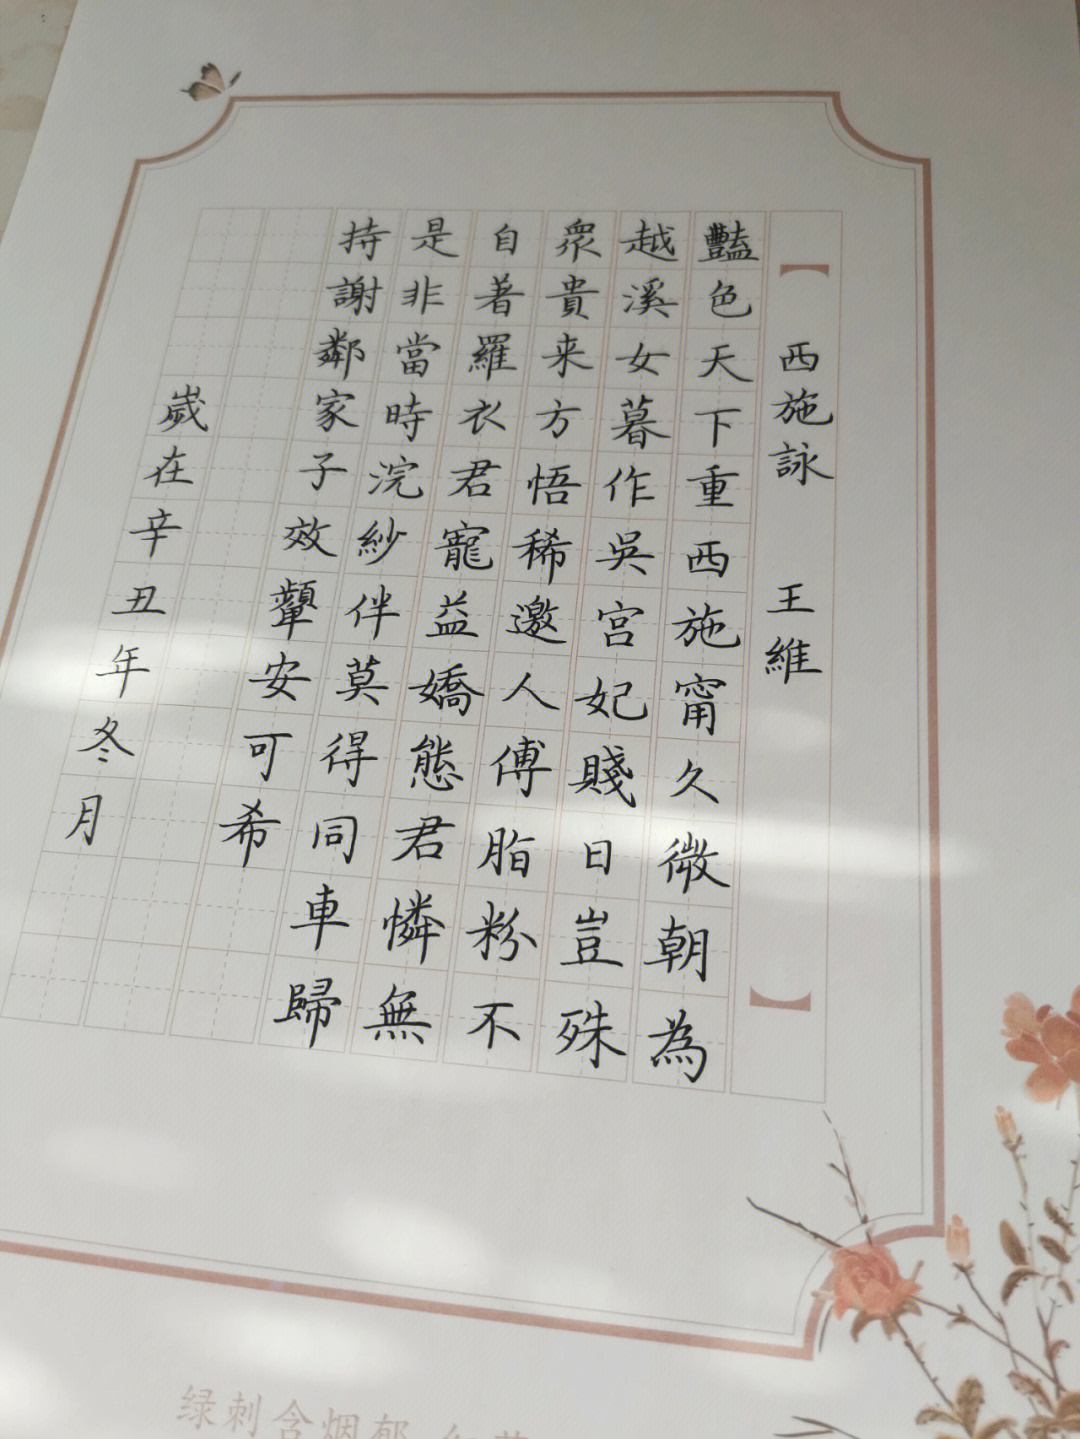 【西施詠 王維】
豔色天下重西施甯久微朝為
越溪女暮作吳宮妃賤日豈殊
眾貴来方悟稀邀人傅脂粉不
自著羅衣君寵益嬌態君憐無
是非當時浣紗伴莫得同車歸
持謝鄰家子效顰安可希
歲在辛丑年冬月
绿刺含烟郁